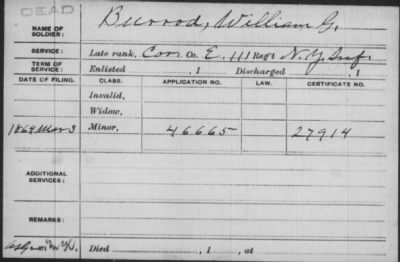 DEAD
NAME OF SOLDIER: Burrod, William G.
SERVICE: Late rank, Cor. Co. E, 111 Reg't N.Y. Inf.
TERM OF SERVICE: Enlisted , 1 Discharged , 1
DATE OF FILING. CLASS. APPLICATION NO. LAW. CERTIFICATE NO.
Invalid,
Widow,
1869 Mar 3 Minor, 46665 27914
ADDITIONAL SERVICES:
REMARKS:
Died , 1 , at